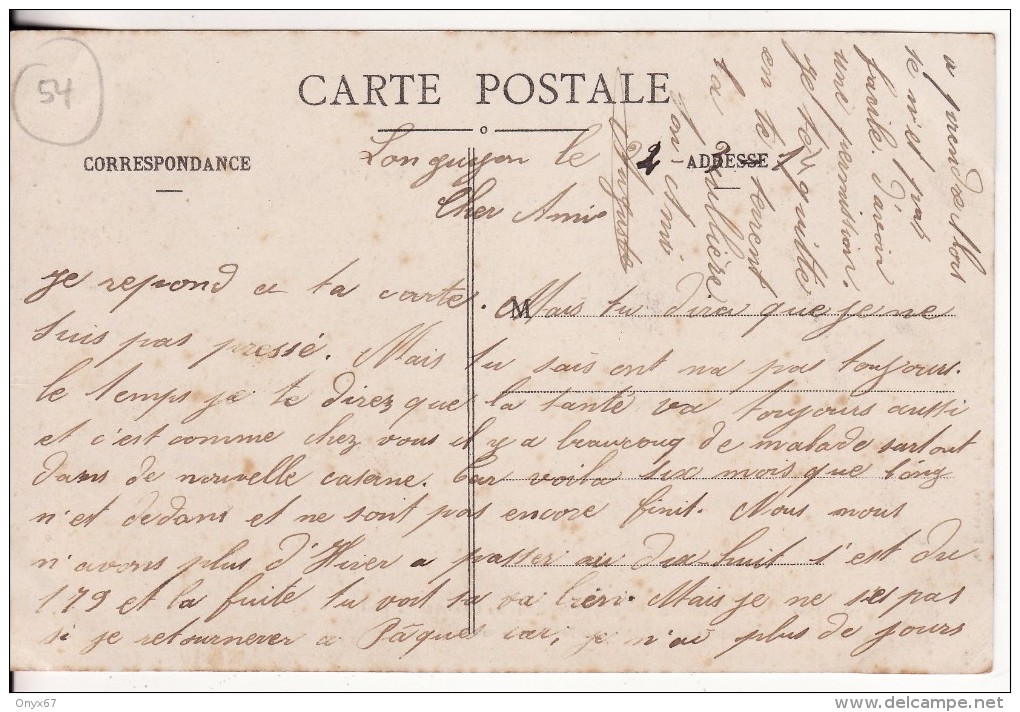 54
CARTE POSTALE
CORRESPONDANCE
ADRESSE
Longuyon le
2
Cher Ami
je repond a ta carte. Mais tu dira que je ne
M
suis pas pressé. Mais tu sais ont na pas toujours
le temps je te direz que la santé va toujours aussi
et c'est comme chez vous il y a beaucoup de malade surtout
dans de nouvelle caserne. Car voila six mois que l'ong
n'et dedans et ne sont pas encore finit. Nous nous
n'avons plus d'Hiver a passer au dix huit s'est du
179 et la fuite tu voit sa va bien. Mais je ne ses pas
si je retournerer a Pâques car, je n'ai plus de jours
a prendre. Moi
se n'et pas
facile. d'avoir
une permission.
je te quitte
en te serent
la
ton Ami
Auguste
Onyx67
delcampe.net